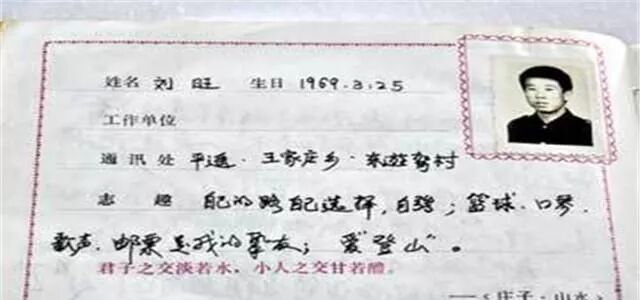 姓名 刘旺 生日 1969.3.25
工作单位
通讯处 平遥·王家庄乡·东游驾村
志趣 自己的路自己选择,自强;篮球·口琴·
歌声·邮票是我的挚友;爱“登山”。
君子之交淡若水,小人之交甘若醴。
——《庄子·山木》